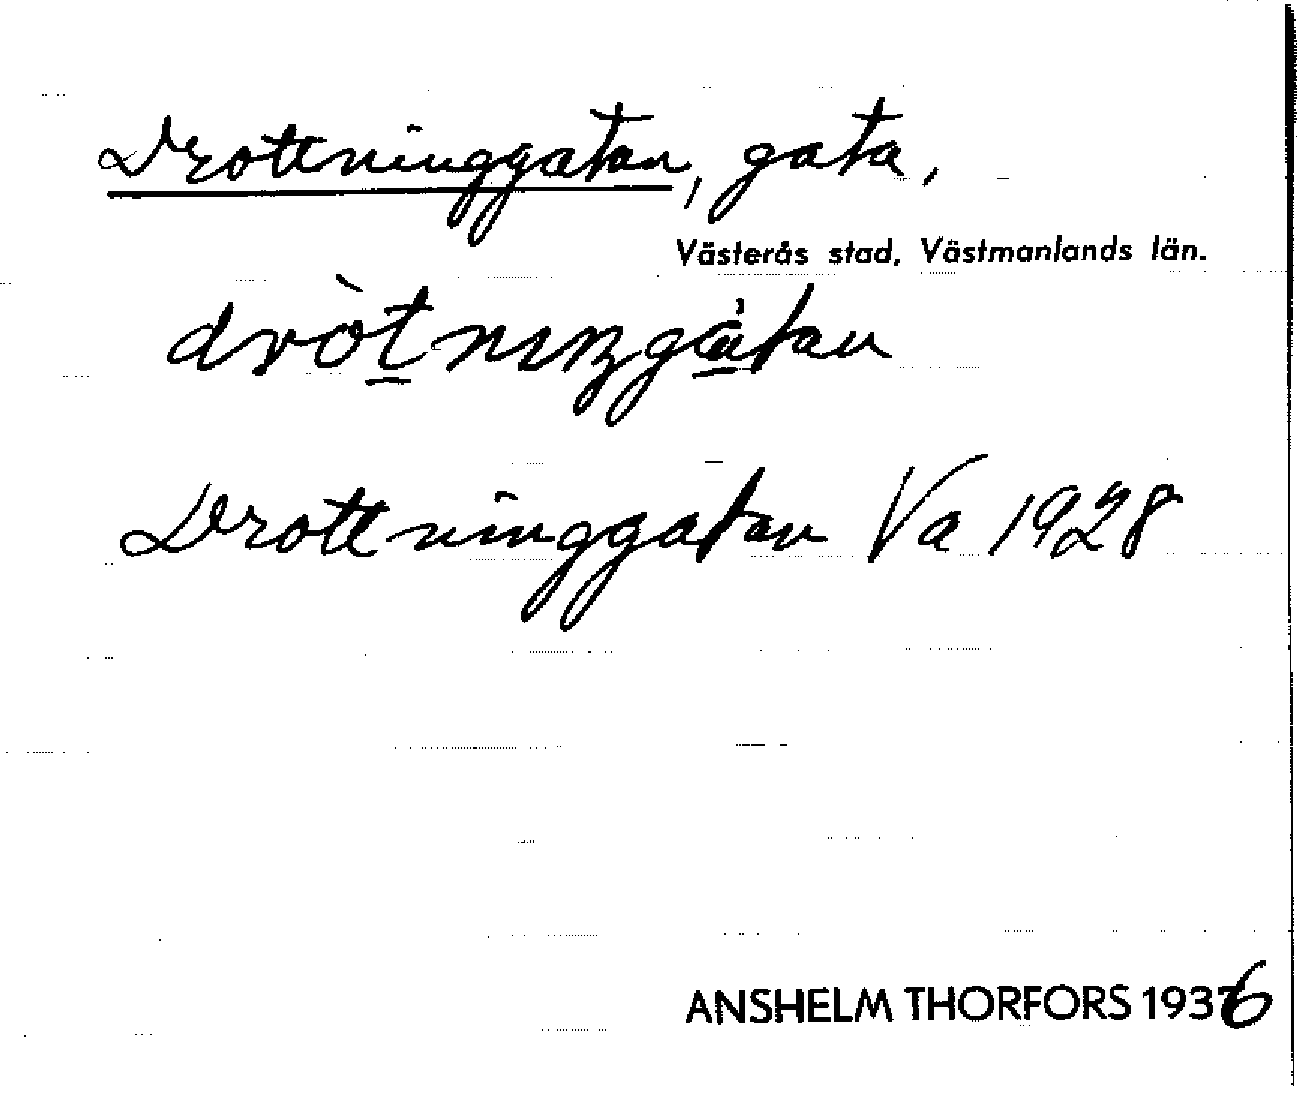 Drottninggatan, gata,
Västerås stad, Västmanlands län.
dròt̲nıŋgà̲tan
Drottninggatan Va 1928
ANSHELM THORFORS 1936